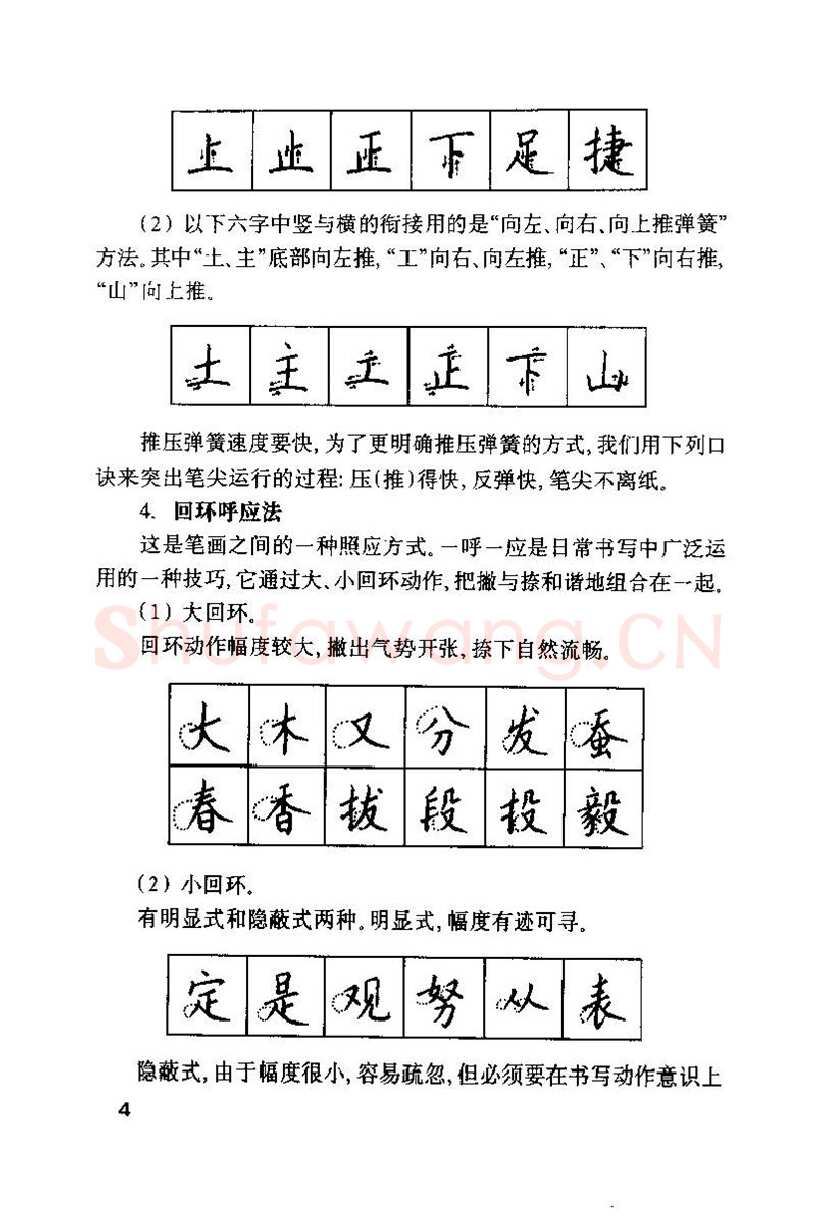 上 止 正 下 足 捷
(2) 以下六字中竖与横的衔接用的是“向左、向右、向上推弹簧”
方法。其中“土、主”底部向左推,“工”向右、向左推,“正”、“下”向右推,
“山”向上推。
土 主 工 正 下 山
推压弹簧速度要快,为了更明确推压弹簧的方式,我们用下列口
诀来突出笔尖运行的过程: 压(推)得快, 反弹快, 笔尖不离纸。
4. 回环呼应法
这是笔画之间的一种照应方式。一呼一应是日常书写中广泛运
用的一种技巧,它通过大、小回环动作,把撇与捺和谐地组合在一起。
(1) 大回环。
Shufawang.CN
回环动作幅度较大,撇出气势开张,捺下自然流畅。
大 木 又 分 发 蚕
春 香 拔 段 投 毅
(2) 小回环。
有明显式和隐蔽式两种。明显式,幅度有迹可寻。
定 是 观 努 从 表
隐蔽式,由于幅度很小,容易疏忽,但必须要在书写动作意识上
4